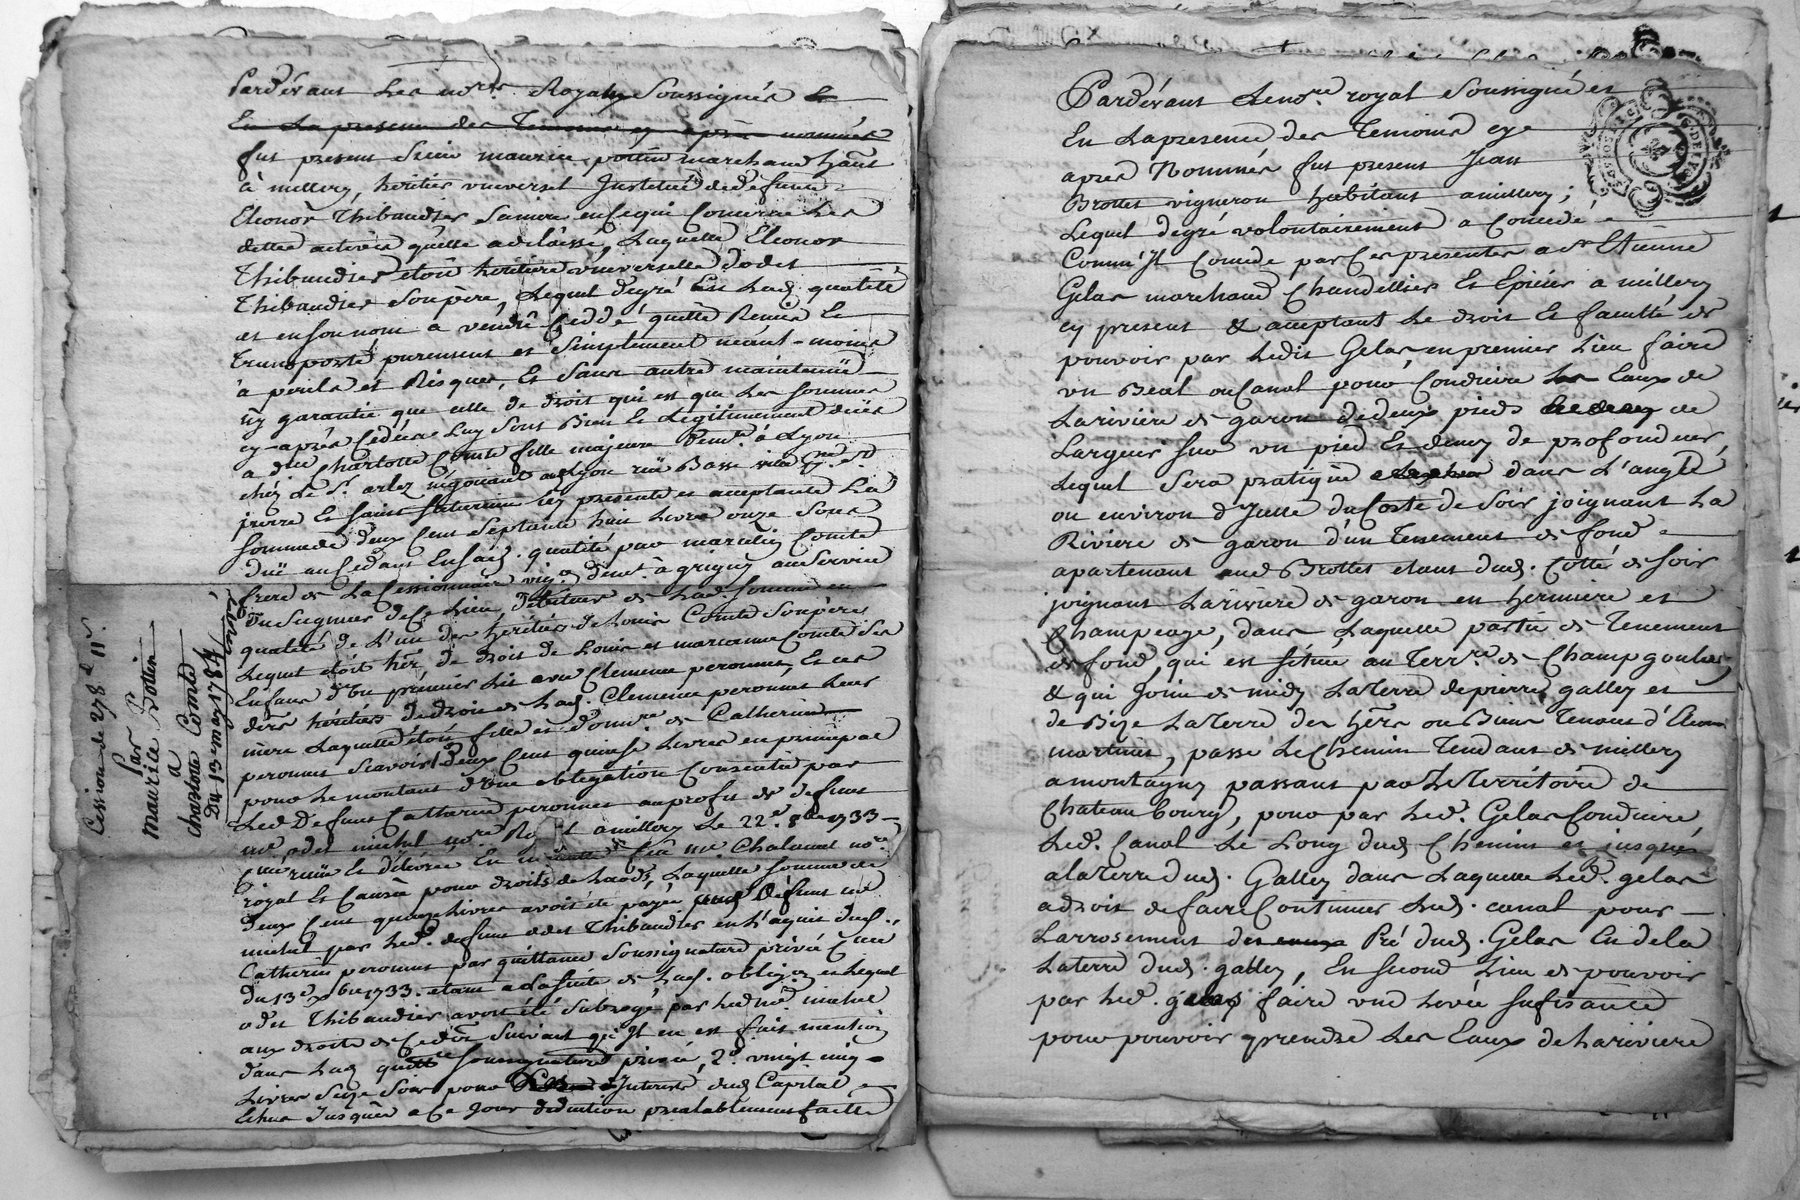 Pardevant Les no.res Royaux Soussignés Et
En La presence des Temoins cy après nommés
fut present Sieur maurice pottin marchand hant
à millery, héritier vniversel Institué de défunte
Eleonor Thibaudier Sa mere en ce qui Concerne Les
dettes actives quelle a délaissé, Laquelle Eleonor
Thibaudier etoit héritiere vniverselle d'odet
Thibaudier Son père, Lequel de gré En Lad. qualité
et en son nom a vendû Ceddé quitté Remis Et
Transporté purement et Simplement néant-moins
à perils et Risques, Et Sans autre maintenüe
ny garantie que celle de droit qui est que Les Sommes
cy-après Cédées Luy Sont Bien Et Légitimement dües
a dlle Charlotte Comte fille majeure demte. à Lyon
chés Le Sr. arlez négociant a Lyon rüe Basse ville
pierre Et Saint Saturnin Icy presente et acceptante La
Somme de deux Cent Septante huit Livres onze Sous
düe au Cedant En sad. qualité par Comte
frere de La Cessionnaire vig.n demt. à grigny au Service
du Seigneur de Ce Lieu, débiteur de Lad. Somme en
qualité de L'un des héritiers de Louis Comte Son père
Lequel étoit hér. de droit de Louis et marianne Comte Ses
Enfans d'un premier Lit avec Clemence peronnet, Et Ces
dits héritiers de droit de Lad. Clemence peronnet Leur
mere Laquelle étoit fille et de Catherine
peronnet Scavoir 1° deux Cent quinse Livres en principal
pour Le montant d'une obligation Consentie par
Lad. Defunte Catherine peronnet au profit de défunt
me odet michel no.re Royal a millery Le 22e. 8bre 1733
reçüe Et délivrée En me Chalamel no.re
royal Et Causée pour droits de Laods, Laquelle Somme de
deux Cent quinze Livres avoit été payée aud Défunt me
michel par Led. defunt odet Thibaudier en L'aquit de lad.
Catherine peronnet par quittance Sous signature privée
du 13e Xbre 1733. étant a La Suite de Lad. oblig.on en Lequel
odet Thibaudier avoit été Subrogé par Led me. michel
aux droits de Cedit Suivant qu'Il en est fait mention
dans Lad quitt Sous signature privée, 2°. vingt cinq
Livres Seize Sous pour Interets dud Capital
Echus Jusques a Ce Jour déduction préalablement faitte
Cession de 278 l 11s.
Par
maurice Pottin
a
charlotte Comte
Du 13e may 1784
Pardevant Le no.re royal Soussigné et
En La presence des Temoins cy
apres Nommés fut present Jean
Brottet vigneron habitant a millery;
Lequel de gré volontairement a Concedé
Comme Il Concede par Ces presentes a Sr Etienne
Gelas marchand Chandellier Et Epicier a millery
cy present & acceptant Le droit Et faculté de
pouvoir par Ledit Gelas, en premier Lieu faire
un Beal ou Canal pour Conduire Les Eaux de
La riviere de garon de deux pieds de
Largeur Sur un pied Et demy de profondeur,
Lequel Sera pratiqué dans L'angle
ou environ d'Icelle du Coste de Soir joignant La
Riviere de garon d'un Tenement de fond
apartenant aud Brottet etant dud. Cotté de Soir
joignant La riviere de garon en hermiere et
Champeage, dans Laquelle partie de Tenement
de fond, qui est Sitüe au Terr.re de Champgoulier,
& qui Joint de midy La Terre de pierre galley et
de Bize La Terre des hérs ou Biens Tenans d'Eleonor
martinet, passe Le Chemin Tendant de millery
a montagny passant par Le Territoire de
Chateau bourg, pour par Led. Gelas Conduire
Led. Canal Le Long dud Chemin et jusques
a La Terre dud. Galley dans Laquelle Led. gelas
a droit de faire Continuer Led. canal pour
L'arrosement des eaux Pré dud. Gelas En de la
La terre dud. galley, En Second Lieu de pouvoir
par Led. gelas faire une Levée Sufisante
pour pouvoir prendre Les Eaux de La riviere